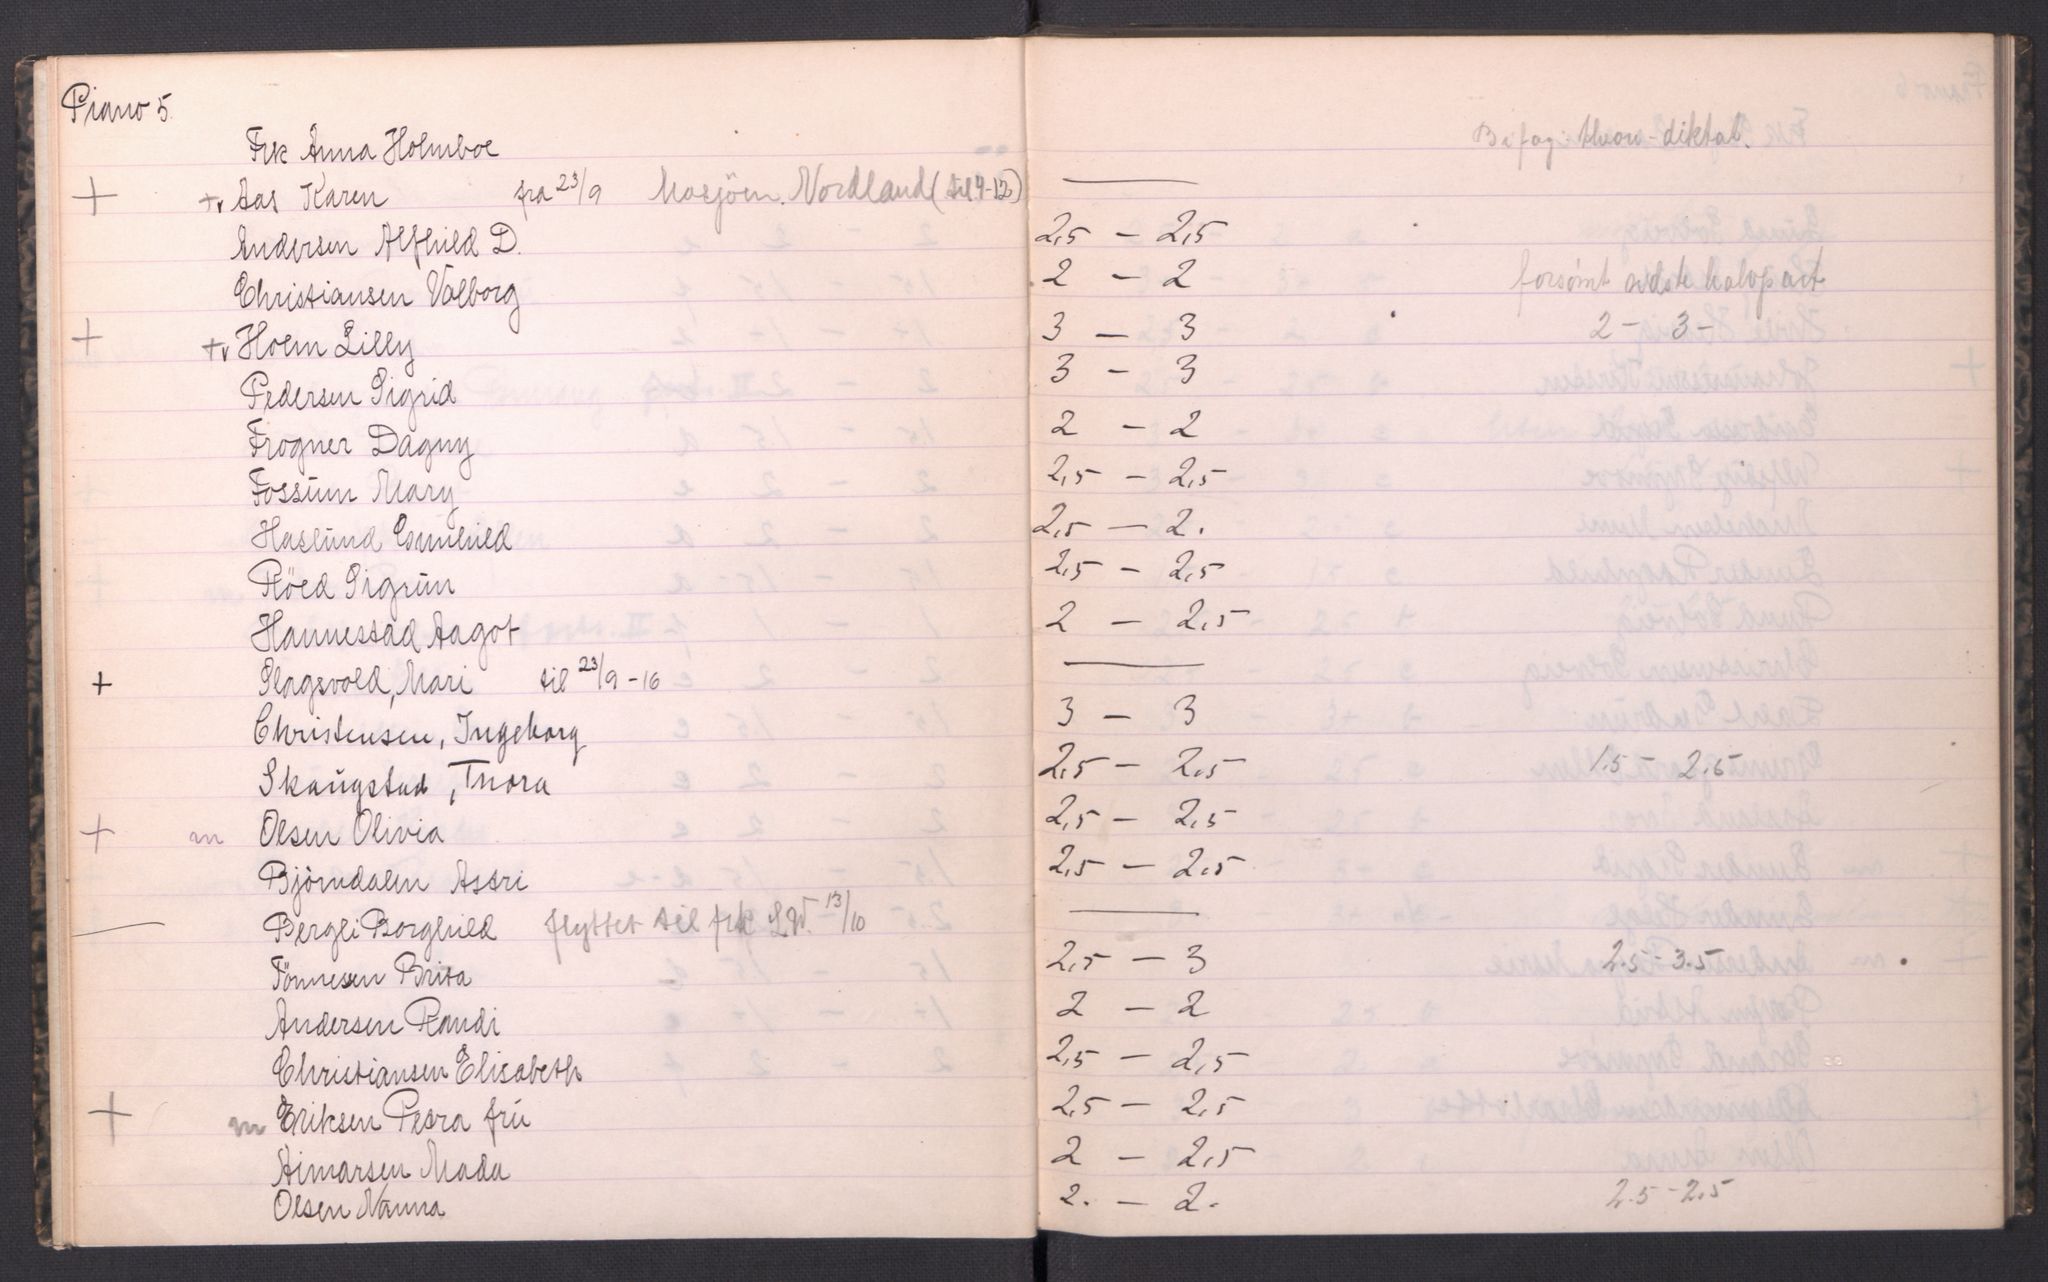 Piano 5.
Frk Anna Holmboe
Bifag: theori - diktat.
+ +v Aas Karen fra 23/9 Mosjöen. Nordland (til 4-12) —
Andersen Alfhild D. 2,5 — 2,5
Christiansen Valborg 2 — 2 forsømt sidste halvpart
+ +v Holm Lilly 3 — 3 2 - 3 -
Pedersen Sigrid 3 — 3
Frogner Dagny 2 — 2
Fossum Mary 2,5 — 2,5
Haslund Gunhild 2,5 — 2.
Röed Sigrun 2,5 — 2,5
Hannestad Aagot 2 — 2,5
+ Slagsvold, Mari til 23/9-16 —
Christensen, Ingeborg 3 — 3
Skaugstad, Thora 2,5 — 2,5 1.5 - 2.5
+ m Olsen Olivia 2,5 — 2,5
Björndalen Astri 2,5 — 2,5
— Bergli Borghild flyttet til frk L.W. 13/10 —
Tönnesen Brita 2,5 — 3 2.5 - 3.5
Andersen Randi 2 — 2
Christiansen Elisabeth 2,5 — 2,5
+ m Eriksen Petra fru 2,5 — 2,5
Aimarsen Mada 2 — 2,5
Olsen Nanna 2. — 2. 2.5 - 2.5